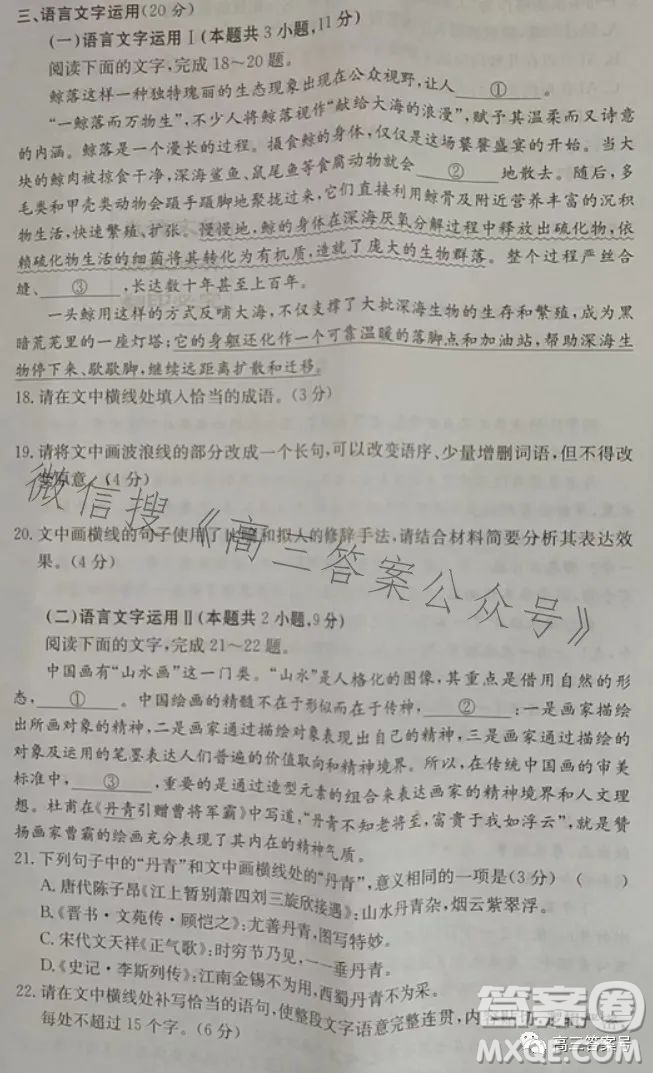 三、语言文字运用(20分)
(一)语言文字运用Ⅰ(本题共3小题,11分)
阅读下面的文字,完成18~20题。
鲸落这样一种独特瑰丽的生态现象出现在公众视野,让人①。
“一鲸落而万物生”,不少人将鲸落视作“献给大海的浪漫”,赋予其温柔而又诗意
的内涵。鲸落是一个漫长的过程。摄食鲸的身体,仅仅是这场饕餮盛宴的开始。当大
块的鲸肉被掠食干净,深海鲨鱼、鼠尾鱼等食腐动物就会②地散去。随后,多
毛类和甲壳类动物会蹑手蹑脚地聚拢过来,它们直接利用鲸骨及附近营养丰富的沉积
物生活,快速繁殖、扩张。慢慢地,鲸的身体在深海厌氧分解过程中释放出硫化物,依
赖硫化物生活的细菌将其转化为有机质,造就了庞大的生物群落。整个过程严丝合
缝、③,长达数十年甚至上百年。
一头鲸用这样的方式反哺大海,不仅支撑了大批深海生物的生存和繁殖,成为黑
暗荒芜里的一座灯塔;它的身躯还化作一个可靠温暖的落脚点和加油站,帮助深海生
物停下来、歇歇脚,继续远距离扩散和迁移。
18.请在文中横线处填入恰当的成语。(3分)
19.请将文中画波浪线的部分改成一个长句,可以改变语序、少量增删词语,但不得改
原意。(4分)
20.文中画横线的句子使用了和拟人的修辞手法,请结合材料简要分析其表达效
果。(4分)
微信搜《高三答案公众号》
(二)语言文字运用Ⅱ(本题共2小题,9分)
阅读下面的文字,完成21~22题。
中国画有“山水画”这一门类。“山水”是人格化的图像,其重点是借用自然的形
态,①。中国绘画的精髓不在于形似而在于传神,②:一是画家描绘
出所画对象的精神,二是画家通过描绘对象表现出自己的精神,三是画家通过描绘的
对象及运用的笔墨表达人们普遍的价值取向和精神境界。所以,在传统中国画的审美
标准中,③,重要的是通过造型元素的组合来表达画家的精神境界和人文理
想。杜甫在《丹青引赠曹将军霸》中写道,“丹青不知老将至,富贵于我如浮云”,就是赞
扬画家曹霸的绘画充分表现了其内在的精神气质。
21.下列句子中的“丹青”和文中画横线处的“丹青”,意义相同的一项是(3分)( )
A.唐代陈子昂《江上暂别萧四刘三旋欣接遇》:山水丹青杂,烟云紫翠浮。
B.《晋书·文苑传·顾恺之》:尤善丹青,图写特妙。
C.宋代文天祥《正气歌》:时穷节乃见,一一垂丹青。
D.《史记·李斯列传》:江南金锡不为用,西蜀丹青不为采。
22.请在文中横线处补写恰当的语句,使整段文字语意完整连贯,内
每处不超过15个字。(6分)
答案圈
高三答案号
MXQE.COM